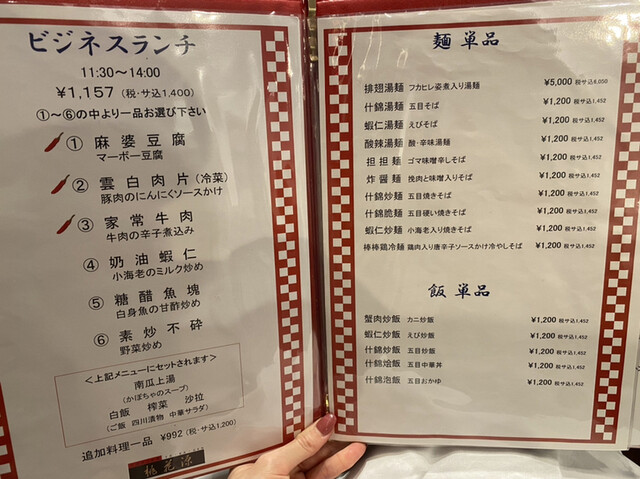 ビジネスランチ
11:30～14:00
¥1,157 (税・サ込1,400)
①～⑥の中より一品お選び下さい
① 麻婆豆腐
マーボー豆腐
② 雲白肉片(冷菜)
豚肉のにんにくソースかけ
③ 家常牛肉
牛肉の辛子煮込み
④ 奶油蝦仁
小海老のミルク炒め
⑤ 糖醋魚塊
白身魚の甘酢炒め
⑥ 素炒不砕
野菜炒め
<上記メニューにセットされます>
南瓜上湯
(かぼちゃのスープ)
白飯 榨菜 沙拉
(ご飯 四川漬物 中華サラダ)
追加料理一品 ¥992 (税・サ込1,200)
桃花源
麺 単品
排翅湯麺 フカヒレ姿煮入り湯麺 ¥5,000 税サ込6,050
什錦湯麺 五目そば ¥1,200 税サ込1,452
蝦仁湯麺 えびそば ¥1,200 税サ込1,452
酸辣湯麺 酸・辛味湯麺 ¥1,200 税サ込1,452
担担麺 ゴマ味噌辛しそば ¥1,200 税サ込1,452
炸醤麺 挽肉と味噌入りそば ¥1,200 税サ込1,452
什錦炒麺 五目焼きそば ¥1,200 税サ込1,452
什錦脆麺 五目硬い焼きそば ¥1,200 税サ込1,452
蝦仁炒麺 小海老入り焼きそば ¥1,200 税サ込1,452
棒棒鶏冷麺 鶏肉入り唐辛子ソースかけ冷やしそば ¥1,200 税サ込1,452
飯 単品
蟹肉炒飯 カニ炒飯 ¥1,200 税サ込1,452
蝦仁炒飯 えび炒飯 ¥1,200 税サ込1,452
什錦炒飯 五目炒飯 ¥1,200 税サ込1,452
什錦燴飯 五目中華丼 ¥1,200 税サ込1,452
什錦泡飯 五目おかゆ ¥1,200 税サ込1,452